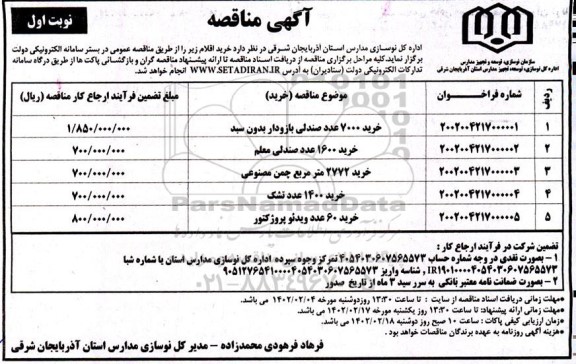 آگهی مناقصه
نوبت اول
سازمان نوسازی، توسعه و تجهیز مدارس
اداره کل نوسازی، توسعه و تجهیز مدارس استان آذربایجان شرقی
اداره کل نوسازی مدارس استان آذربایجان شرقی در نظر دارد خرید اقلام زیر را از طریق مناقصه عمومی در بستر سامانه الکترونیکی دولت
برگزار نماید. کلیه مراحل برگزاری مناقصه از دریافت اسناد مناقصه تا ارائه پیشنهاد مناقصه گران و بازگشائی پاکت ها از طریق درگاه سامانه
تدارکات الکترونیکی دولت (ستادایران) به آدرس WWW.SETADIRAN.IR انجام خواهد شد.
ردیف شماره فراخوان موضوع مناقصه (خرید) مبلغ تضمین فرآیند ارجاع کار مناقصه (ریال)
۱ ۲۰۰۲۰۰۴۲۱۷۰۰۰۰۰۱ خرید ۷۰۰۰ عدد صندلی بازودار بدون سبد ۱/۸۵۰/۰۰۰/۰۰۰
۲ ۲۰۰۲۰۰۴۲۱۷۰۰۰۰۰۲ خرید ۱۶۰۰ عدد صندلی معلم ۷۰۰/۰۰۰/۰۰۰
۳ ۲۰۰۲۰۰۴۲۱۷۰۰۰۰۰۳ خرید ۲۷۷۲ متر مربع چمن مصنوعی ۷۰۰/۰۰۰/۰۰۰
۴ ۲۰۰۲۰۰۴۲۱۷۰۰۰۰۰۴ خرید ۱۴۰۰ عدد تشک ۷۰۰/۰۰۰/۰۰۰
۵ ۲۰۰۲۰۰۴۲۱۷۰۰۰۰۰۵ خرید ۶۰ عدد ویدئو پروژکتور ۸۰۰/۰۰۰/۰۰۰
ParsNamadData
۰۲۱-۸۸۳۴۹۶۷۰
تضمین شرکت در فرآیند ارجاع کار :
۱ – بصورت نقدی در وجه شماره حساب ۴۰۵۴۰۳۰۶۰۷۵۶۵۵۷۳ تمرکز وجوه سپرده اداره کل نوسازی مدارس استان با شماره شبا
IR۱۹۰۱۰۰۰۰۴۰۵۴۰۳۰۶۰۷۵۶۵۵۷۳ , شناسه واریز
۲ – بصورت ضمانت نامه معتبر بانکی به سرر سید ۳ ماه از تاریخ صدور
*مهلت زمانی دریافت اسناد مناقصه از سایت : تا ساعت ۱۳:۳۰ روز دوشنبه مورخه ۱۴۰۲/۰۲/۰۴ می باشد.
*مهلت زمانی ارائه پیشنهاد: تا ساعت ۱۳:۳۰ روز یکشنبه مورخه ۱۴۰۲/۰۲/۱۷ می باشد.
*زمان ارزیابی کیفی پاکات : ساعت ۱۰ صبح روز دوشنبه ۱۴۰۲/۰۲/۱۸ می باشد.
*هزینه آگهی روزنامه به عهده برندگان مناقصات خواهد بود.
فرهاد فرهودی محمدزاده – مدیر کل نوسازی مدارس استان آذربایجان شرقی